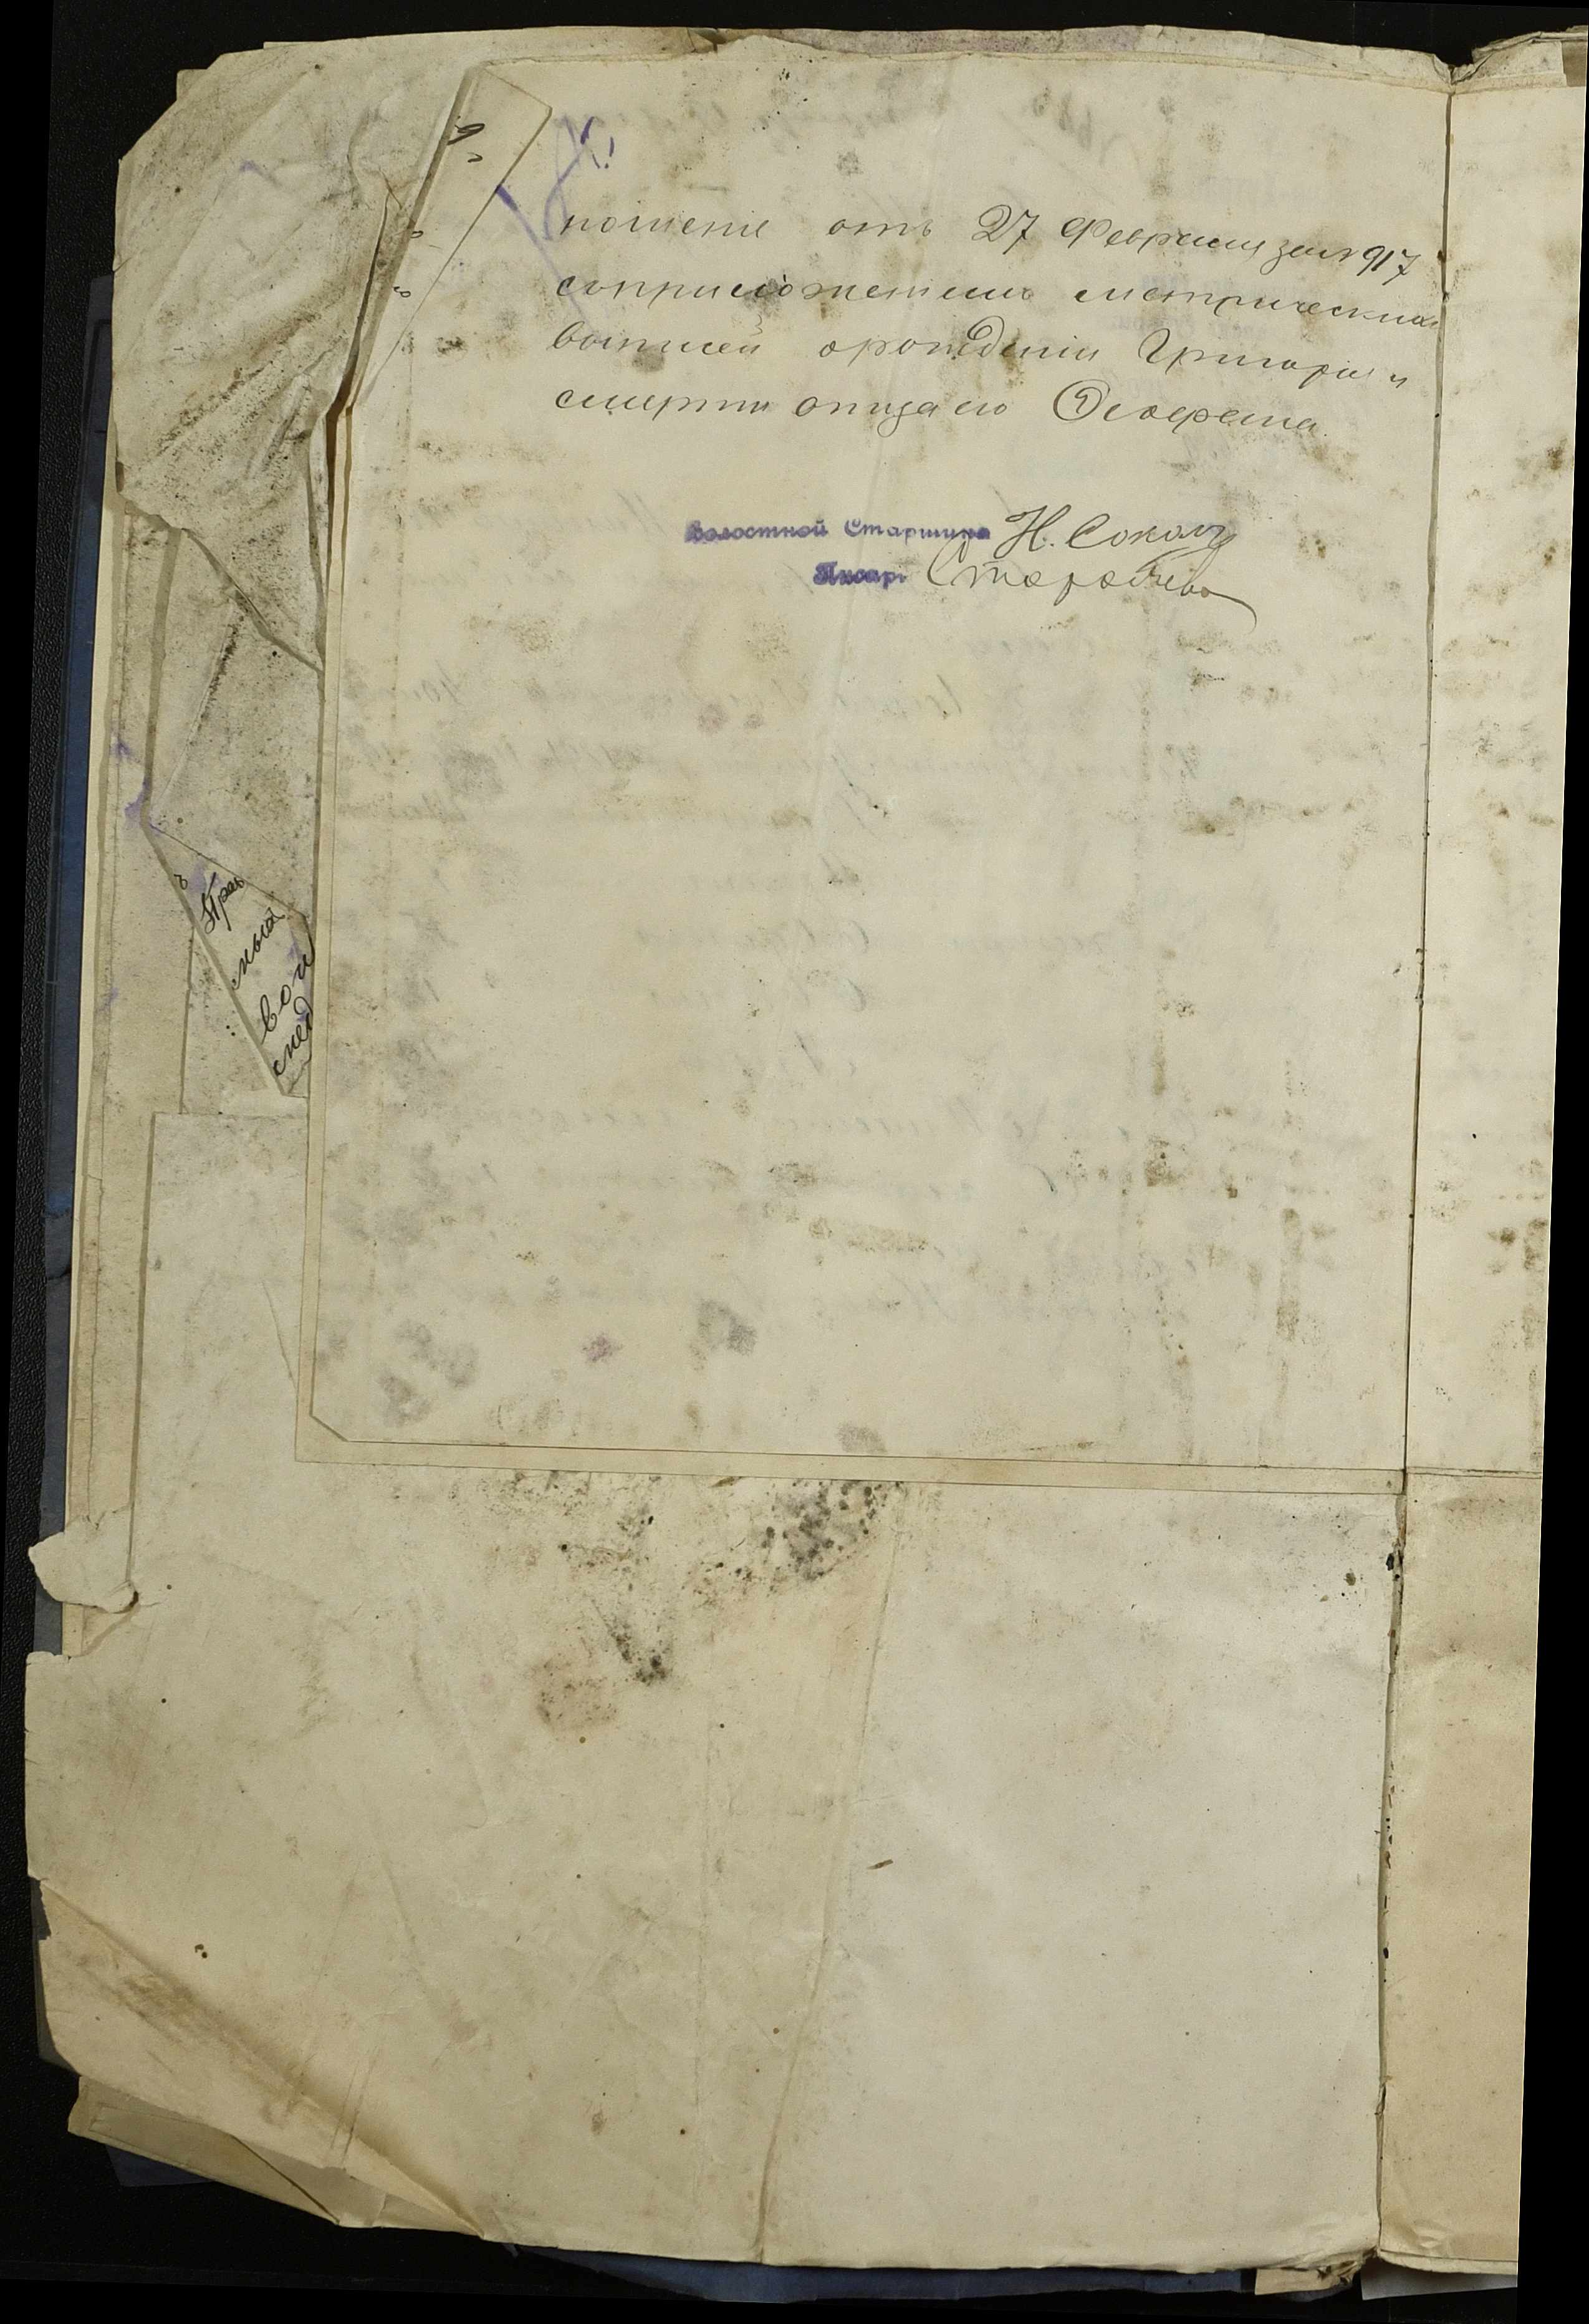 ношеніе отъ 27 Февраля за № 917
съ приложеніемъ метрическихъ
выписей о рожденіи Григорія и
смерти отца его Ѳеофана.
Волостной Старшина Н. Соколъ
Писарь
Прав
ныя
вои
слѣд